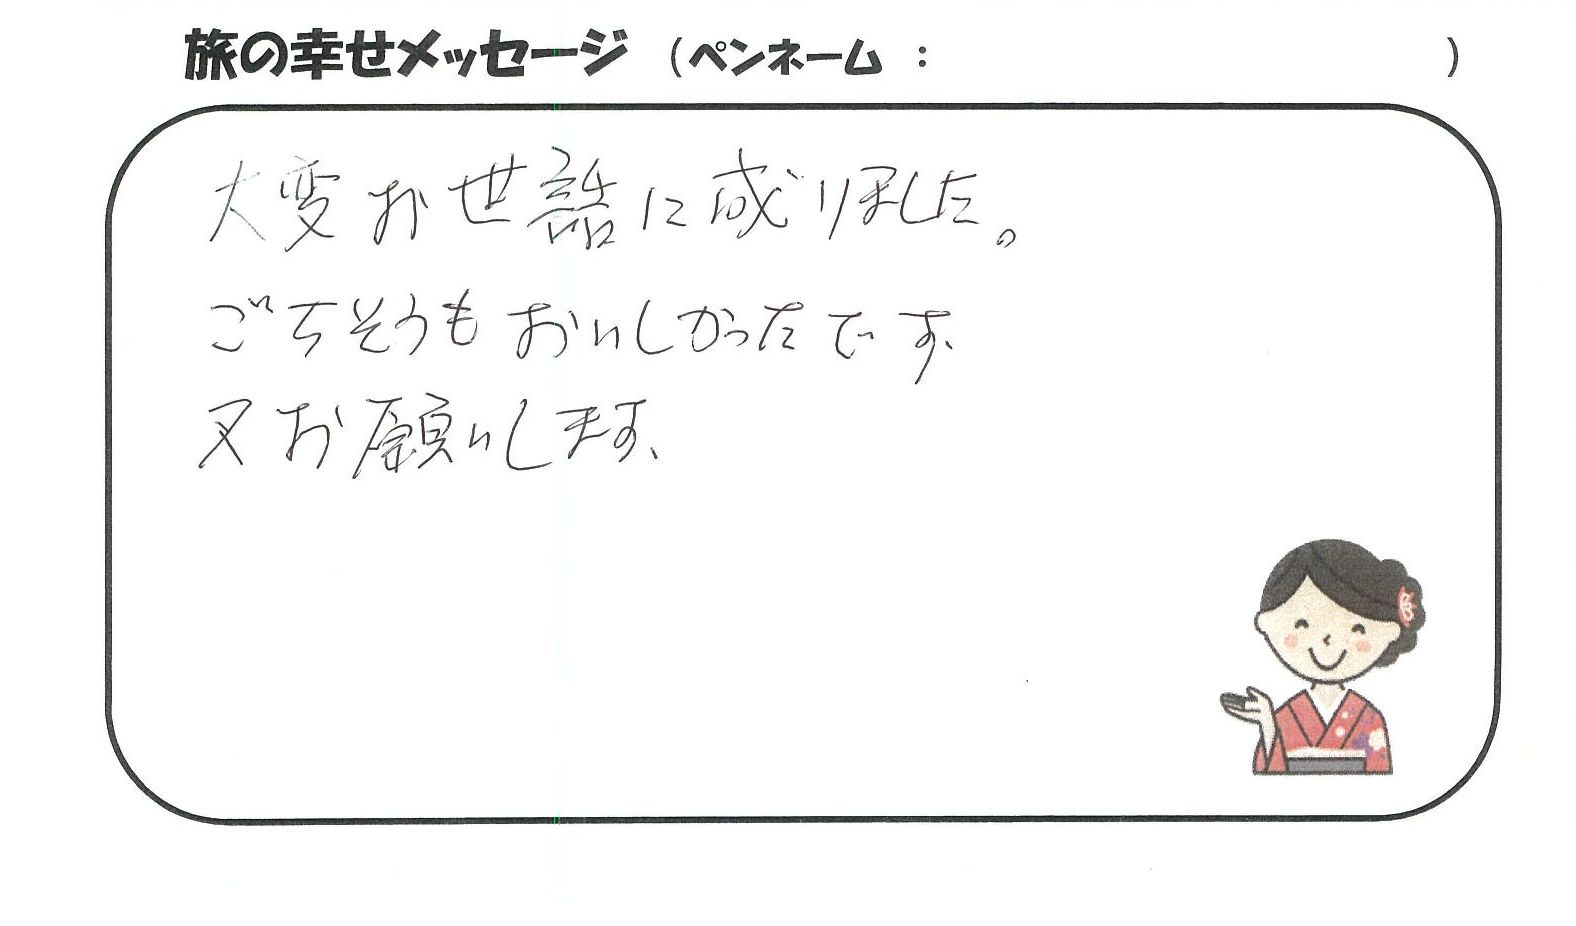 旅の幸せメッセージ (ペンネーム : )
大変お世話に成りました。
ごちそうもおいしかったです、
又お願いします、